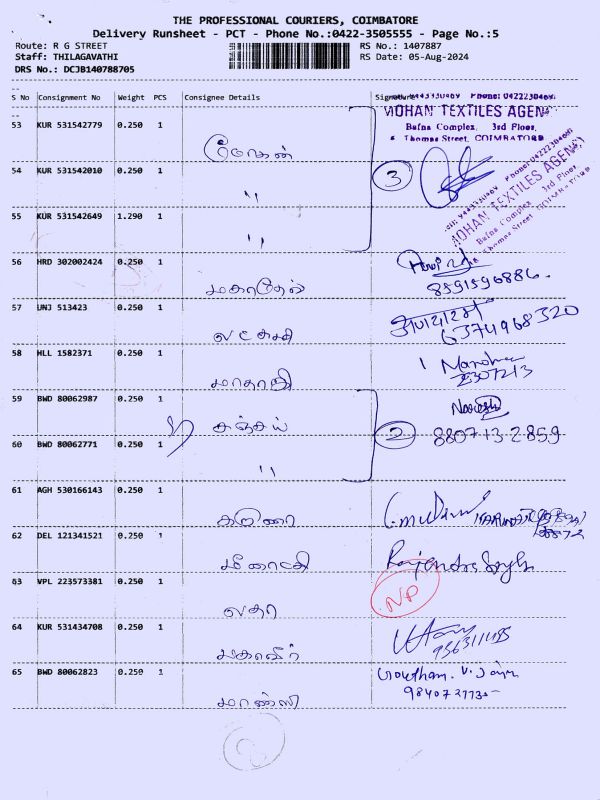 THE PROFESSIONAL COURIERS, COIMBATORE
Delivery Runsheet - PCT - Phone No.:0422-3505555 - Page No.:5
Route: R G STREET RS No.: 1407887
Staff: THILAGAVATHI RS Date: 05-Aug-2024
DRS No.: DCJB140788705
S No Consignment No Weight PCS Consignee Details Signature
MOHAN TEXTILES AGENCY
Bafna Complex, 3rd Floor,
Thomas Street, COIMBATORE
53 KUR 531542779 0.250 1
மோகன்
54 KUR 531542010 0.250 1 3
"
55 KUR 531542649 1.290 1
"
MOHAN TEXTILES AGENCY
Bafna Complex 3rd Floor
56 HRD 302002424 0.250 1
மகாதேவ் 8591596886.
57 UNJ 513423 0.250 1
லட்சுமி 6374968320
58 HLL 1582371 0.250 1
59 BWD 80062987 0.250 1 Naresh
சஞ்சய் 2 8807132859
60 BWD 80062771 0.250 1
"
61 AGH 530166143 0.250 1
கருணை
62 DEL 121341521 0.250 1
மீனாட்சி Rajendra Singh
63 VPL 223573381 0.250 1
லதா NP
64 KUR 531434708 0.250 1
மகாவீர்
65 BWD 80062823 0.250 1 Gowtham. V. Jain
மான்ஸி